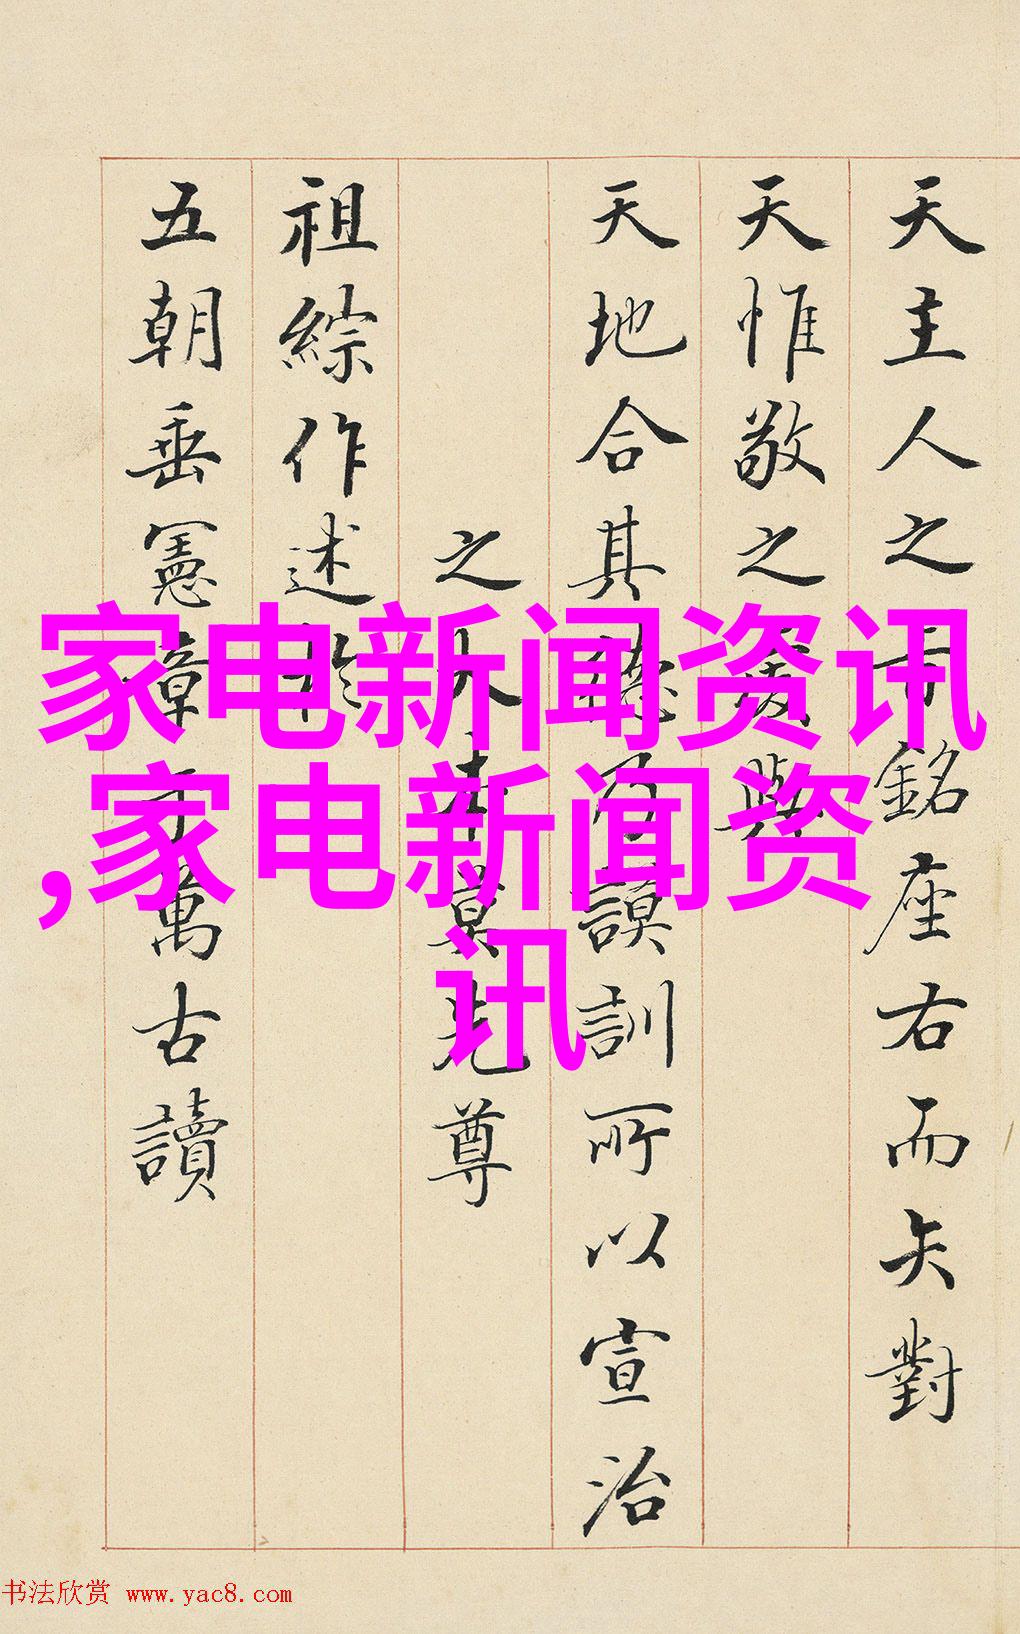 天主人之銘座右而矢對
天惟敬之與
天地合其德乃謨訓所以宣治
之大本莫先尊
祖綜作述於
五朝垂憲章于萬古讀
家电新闻资讯
,家电新闻资
讯
书法欣赏 www.yac8.com